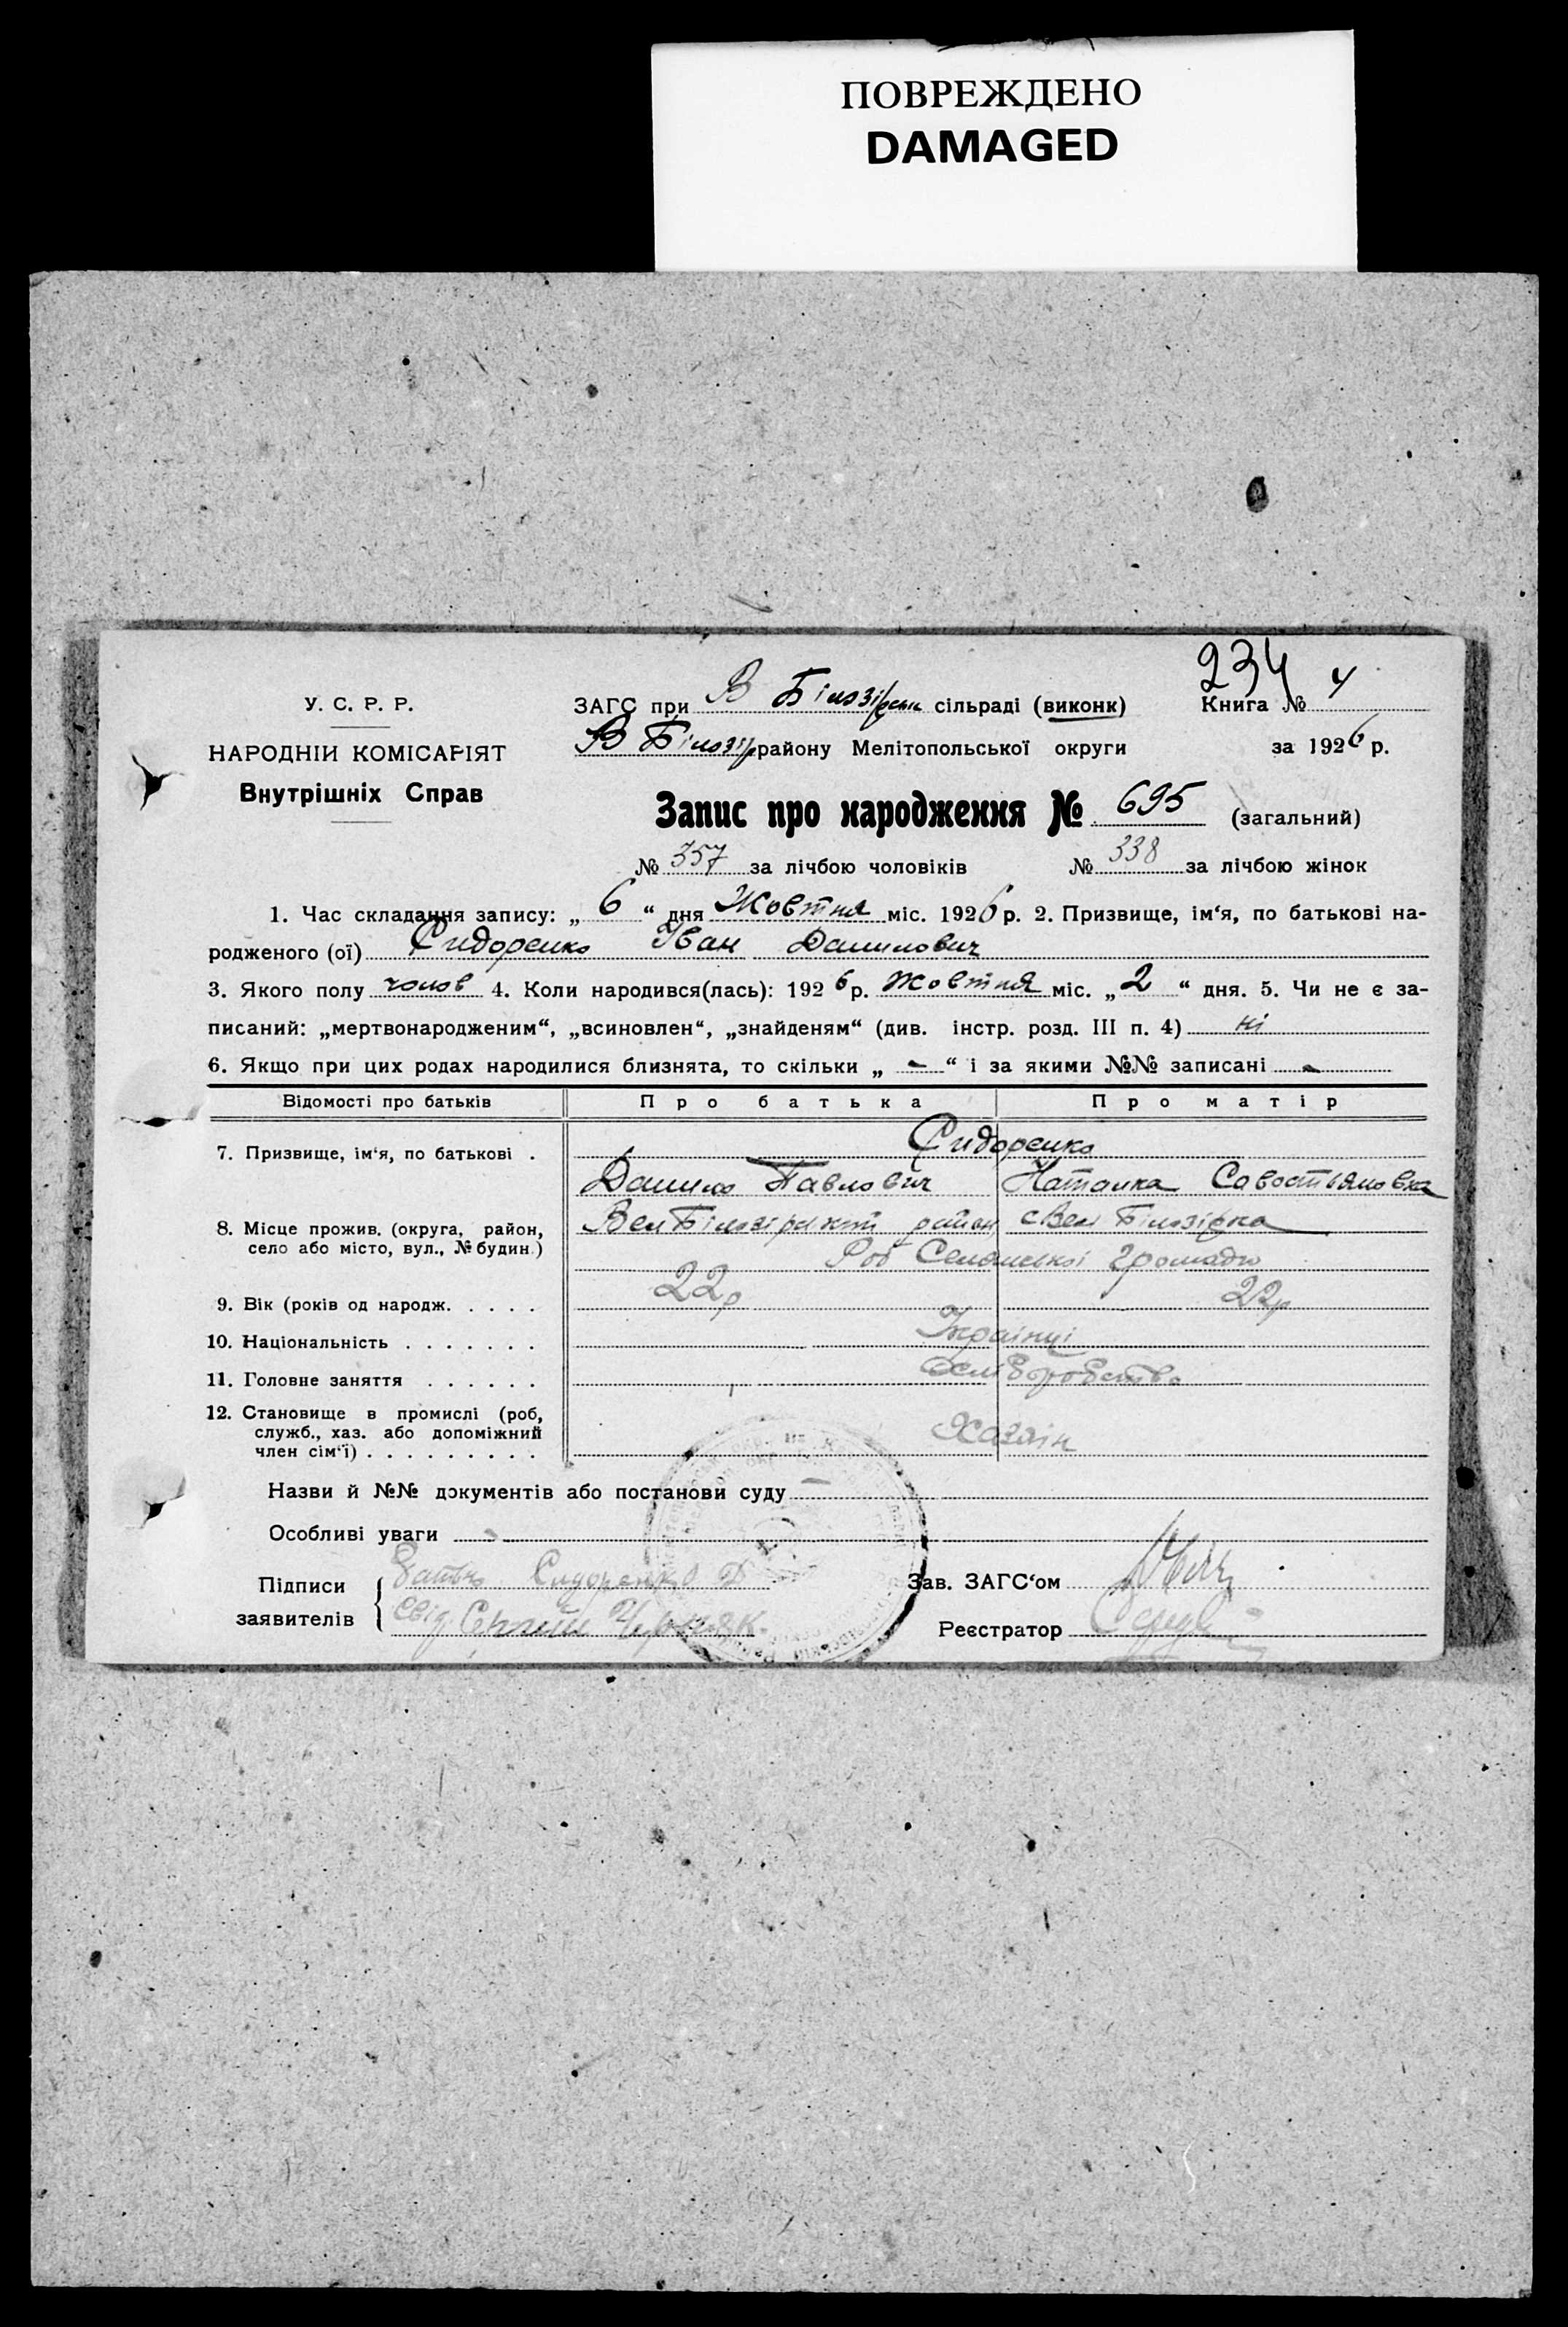 ПОВРЕЖДЕНО
DAMAGED
234
У. С. Р. Р.
НАРОДНІЙ КОМІСАРІЯТ
Внутрішніх Справ
ЗАГС при В Білозірськ сільраді (виконк)
Книга № 4
В Білозір району Мелітопольської округи
за 1926 р.
Запис про народження № 695 (загальний)
№ 357 за лічбою чоловіків № 338 за лічбою жінок
1. Час складання запису: „ 6 “ дня Жовтня міс. 1926 р. 2. Призвище, ім‘я, по батькові на-
родженого (ої) Сидоренко Іван Данилович
3. Якого полу чолов 4. Коли народився(лась): 1926 р. Жовтня міс. „ 2 “ дня. 5. Чи не є за-
писаний: „мертвонародженим“, „всиновлен“, „знайденям“ (див. інстр. розд. III п. 4) ні
6. Якщо при цих родах народилися близнята, то скільки „ - “ і за якими №№ записані -
Відомості про батьків Про батька Про матір
7. Призвище, ім‘я, по батькові . Сидоренко
Данило Павлович Наталка Савостьяновна
8. Місце прожив. (округа, район, село або місто, вул., № будин.) Вел Білозірський район, с Вел Білозірка
Роб Селянської громади
9. Вік (років од народж. . . . . 22р 22р
10. Національність . . . . . . . Українці
11. Головне заняття . . . . . .
12. Становище в промислі (роб,
служб., хаз. або допоміжний
член сім‘ї) . . . . . . . . . Хазяїн
Назви й №№ документів або постанови суду —
Особливі уваги -
Підписи
заявителів
Батько Сидоренко Д
Свід. Черняк
Зав. ЗАГС‘ом
Реєстратор